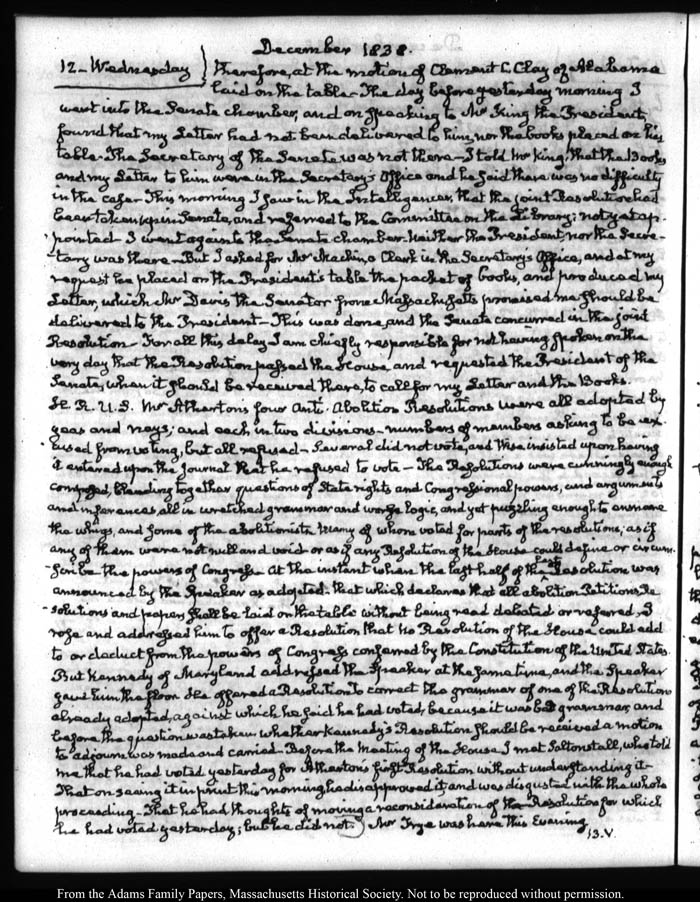 December 1838.
12 - Wednesday } therefore, at the motion of Clement C. Clay of Alabama
laid on the table - The day before yesterday morning I
went into the Senate chamber, and on speaking to Mr King the President,
found that my Letter had not been delivered to him, nor the books placed on his
table - The Secretary of the Senate was not there - I told Mr King, that the Books
and my Letter to him were in the Secretary's Office and he said there was no difficulty
in the case - This morning I saw in the Intelligencer, that the joint Resolution had
been taken up in Senate, and referred to the Committee on the Library; not yet ap-
pointed - I went again to the Senate chamber - Neither the President, nor the Secre-
-tary was there - But I asked for Mr Machen, a Clerk in the Secretary's Office, and at my
request he placed on the President's table the packet of books, and produced my
Letter, which Mr Davis the Senator from Massachusetts promised me should be
delivered to the President - This was done, and the Senate concurred in the joint
Resolution - For all this delay I am chiefly responsible for not having spoken on the
very day that the Resolution passed the House, and requested the President of the
Senate, when it should be received there, to call for my Letter and the Books.
H. R. U. S. Mr Atherton's four Anti-Abolition Resolutions were all adopted by
yeas and nays; and each in two divisions - numbers of members asking to be ex-
cused from voting, but all refused - Several did not vote, and Wise insisted upon having
it entered upon the Journal that he refused to vote - The Resolutions were cunningly enough
composed, blending together questions of State rights and Congressional powers, and arguments
and inferences, all in wretched grammar and worse logic, and yet puzzling enough to ensnare
the whigs, and some of the abolitionists many of whom voted for parts of the resolutions; as if
any of them were not null and void or as if any Resolution of the House could define or circum-
scribe the powers of Congress - At the instant when the last half of the last Resolution was
announced by the Speaker as adopted - that which declares that all abolition Petitions, Re
-solutions and papers shall be laid on the table without being read debated or referred, I
rose and addressed him to offer a Resolution that no Resolution of the House could add
to or deduct from the powers of Congress conferred by the Constitution of the United States.
But Kennedy of Maryland addressed the Speaker at the same time, and the Speaker
gave him the floor. He offered a Resolution to correct the grammar of one of the Resolutions
already adopted, against which he said he had voted, because it was bad grammar, and
before the question was taken whether Kennedy's Resolution should be received a motion
to adjourn was made and carried - Before the meeting of the House I met Saltonstall, who told
me that he had voted yesterday for Atherton's first Resolution without understanding it -
That on seeing it in print this morning he disapproved it, and was disgusted with the whole
proceeding - That he had thoughts of moving a reconsideration of the Resolution for which
he had voted yesterday; but he did not. Mr Frye was here this Evening
13. V.
From the Adams Family Papers, Massachusetts Historical Society. Not to be reproduced without permission.